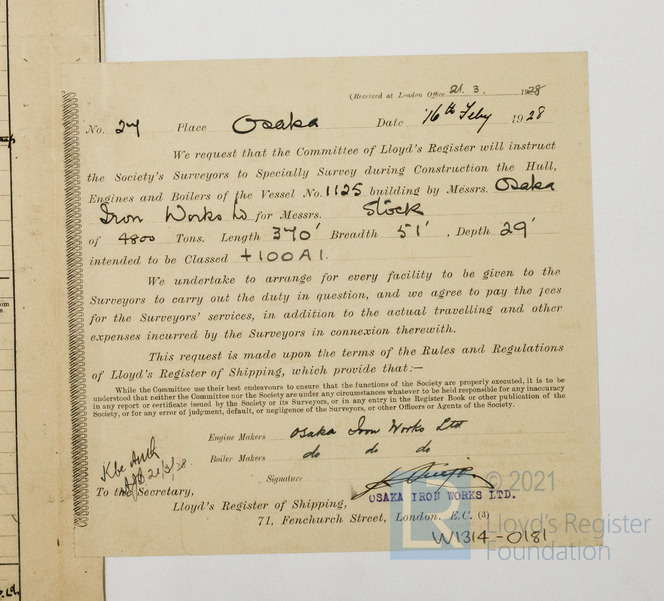 (Received at London Office 21. 3. 1928
No. 27 Place Osaka Date 16th Feby 1928
We request that the Committee of Lloyd's Register will instruct
the Society's Surveyors to Specially Survey during Construction the Hull,
Engines and Boilers of the Vessel No. 1125 building by Messrs. Osaka
Iron Works Ld for Messrs. Stock
of 4800 Tons. Length 370' Breadth 51', Depth 29'
intended to be Classed +100A1.
We undertake to arrange for every facility to be given to the
Surveyors to carry out the duty in question, and we agree to pay the fees
for the Surveyors' services, in addition to the actual travelling and other
expenses incurred by the Surveyors in connexion therewith.
This request is made upon the terms of the Rules and Regulations
of Lloyd's Register of Shipping, which provide that:—
While the Committee use their best endeavours to ensure that the functions of the Society are properly executed, it is to be
understood that neither the Committee nor the Society are under any circumstances whatever to be held responsible for any inaccuracy
in any report or certificate issued by the Society or its Surveyors, or in any entry in the Register Book or other publication of the
Society, or for any error of judgment, default, or negligence of the Surveyors, or other Officers or Agents of the Society.
Engine Makers Osaka Iron Works Ltd
Boiler Makers do do do
Kbe
21/3/28
Signature
OSAKA IRON WORKS LTD.
To the Secretary,
Lloyd's Register of Shipping,
71, Fenchurch Street, London, E.C. (3)
W1314-0181
© 2021
LR
Lloyd's Register
Foundation